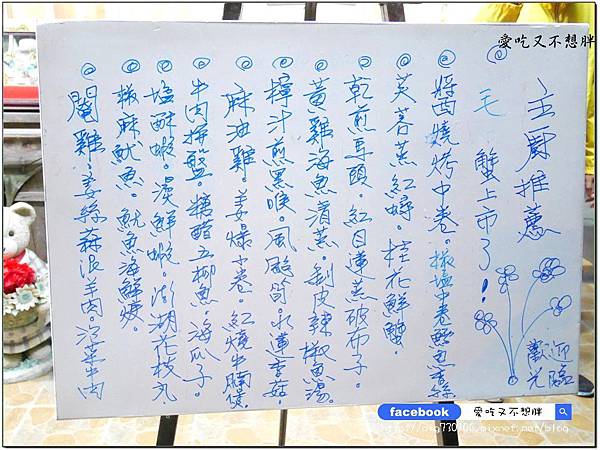 愛吃又不想胖
主廚推薦
毛蟹上市了!
歡迎光臨
醬燒烤中卷。椒塩中卷鱈魚香絲
芙蓉蒸紅蟳。桂花鮮蟹。
乾煎馬頭。紅目連蒸破布子。
黃雞海魚清蒸。剝皮辣椒魚湯。
檸汁煎黑喉。風颱筍。水蓮香菇。
麻油雞。姜爆中卷。紅燒牛腩煲
牛肉拼盤。糖醋五柳魚。海瓜子。
塩酥蝦。燙鮮蝦。澎湖花枝丸
椒麻魷魚。魷魚海鮮煲。
閹雞。姜絲蒜泥羊肉。泡菜牛肉
facebook 愛吃又不想胖